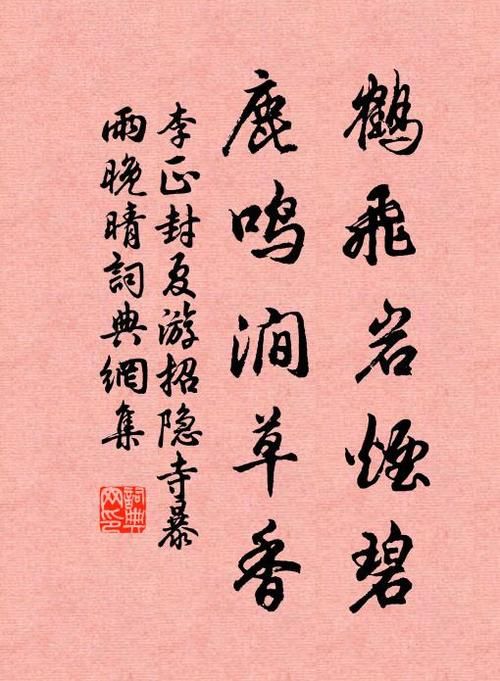 鹤飛岩煙碧
鹿鸣澗草香
李正封夏游招隐寺暴
雨晚晴詞典網集
詞典网印